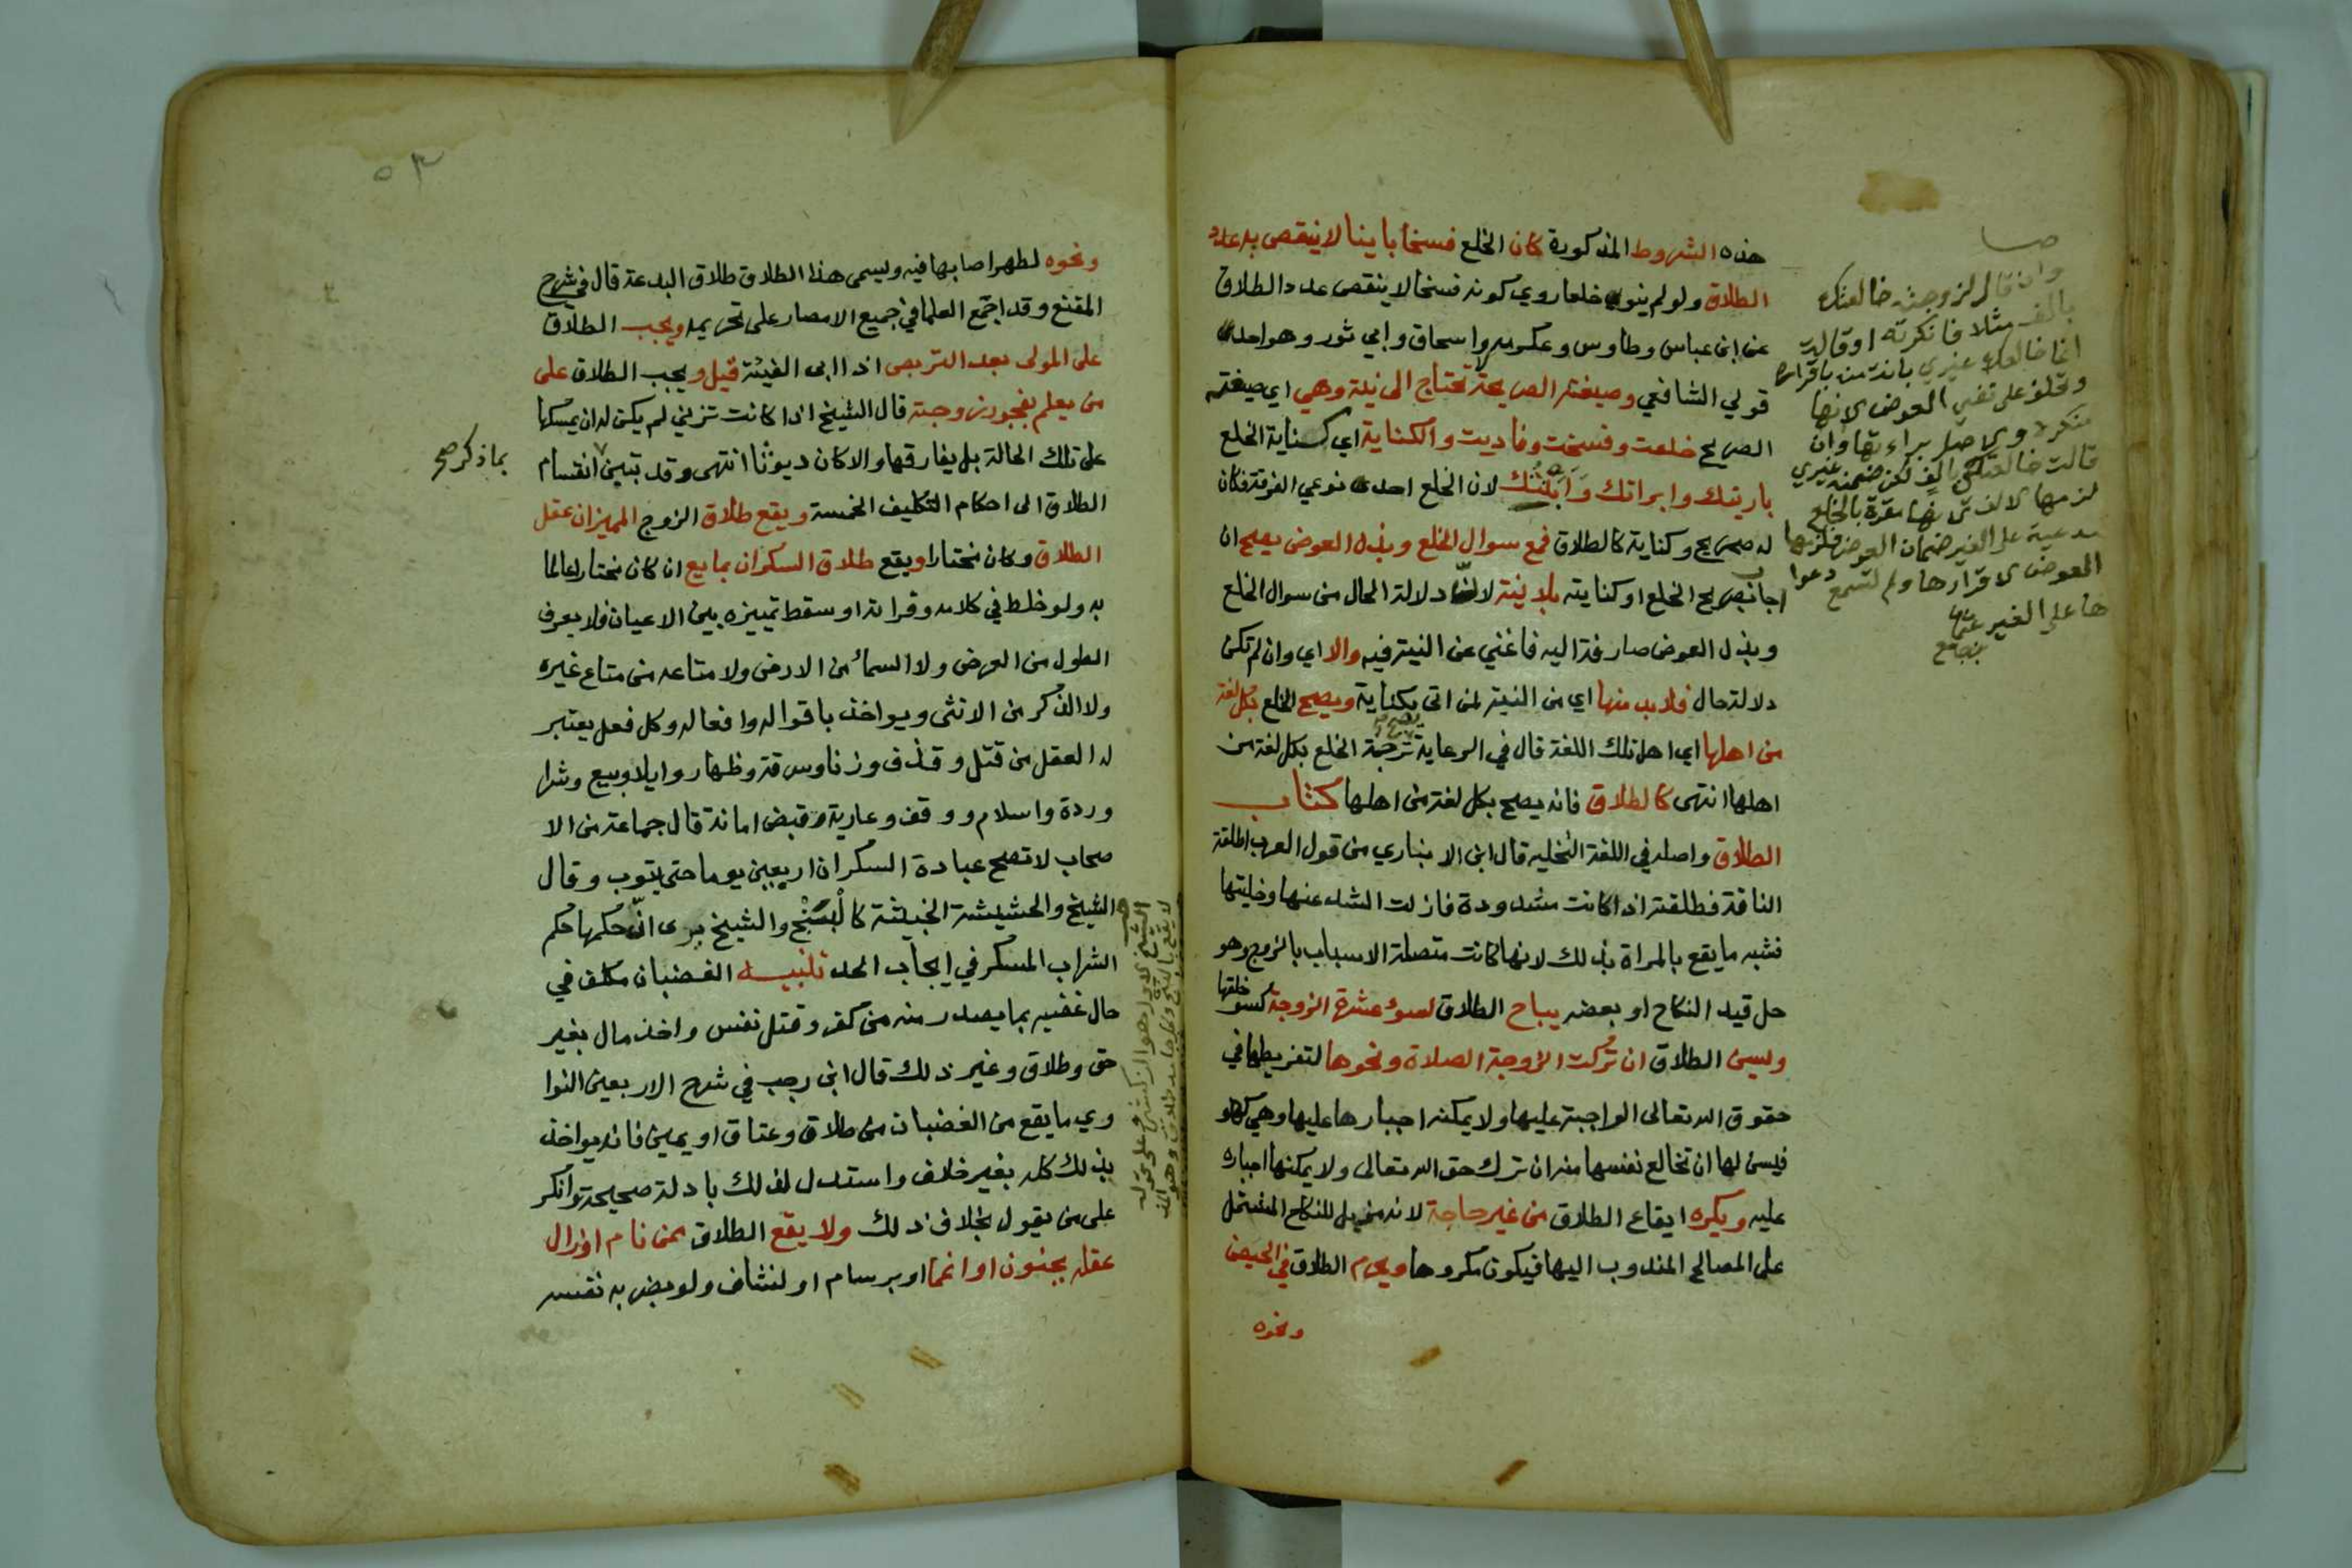 هذه الشروط المذكورة كان الخلع فسخا باينا لا ينقص به عدد
الطلاق ولو لم ينو خلعا روي كونه فسخا لا ينقص عدد الطلاق
عن ابن عباس وطاوس وعكرمه واسحاق وابي ثور وهو احد
قولي الشافعي وصيغته الصريحة لا تحتاج الى نية وهي اي صيغته
الصريح خلعت وفسخت وفاديت والكناية اي كناية الخلع
باريتك وابراتك وابنتك لان الخلع احد نوعي الفرقة فكان
له صريح وكناية كالطلاق فمع سوال الخلع وبذل العوض يصح ان
اجاب بصريح الخلع او كنايته بلا نية لان دلالة الحال من سوال الخلع
وبذل العوض صارفة اليه فاغني عن النية فيه والا اي وان لم تكن
دلالة حال فلا بد منها اي من النية لمن اتى بكناية ويصح الخلع بكل لغة
من اهلها اي اهل تلك اللغة قال في الرعاية يصح ترجمة الخلع بكل لغة من
اهلها انتهى كالطلاق فانه يصح بكل لغة من اهلها كتاب
الطلاق واصله في اللغة التخليه قال ابن الانباري من قول العرب اطلقت
الناقة فطلقت اذا كانت مشدودة فازلت الشد عنها وخليتها
فشبه ما يقع بالمراة بذلك لانها كانت متصلة الاسباب بالزوج وهو
حل قيد النكاح او بعضه يباح الطلاق لسوء عشرة الزوجة كسو خلقها
ويسن الطلاق ان تركت الزوجة الصلاة ونحوها لتفريطها في
حقوق الله تعالى الواجبة عليها ولا يمكنه اجبارها عليها وهي كهو
فيسن لها ان تخالع نفسها منه ان ترك حق الله تعالى ولا يمكنها اجباره
عليه ويكره ايقاع الطلاق من غير حاجة لانه مزيل للنكاح المشتمل
على المصالح المندوب اليها فيكون مكروها ويحرم الطلاق في الحيض
ونحوه
وان قال لزوجته خالعتك
بالف مثلا فانكرته او قالت
انما خالعك غيري بانت منه باقراره
وتحلف على نفي العوض لانها
منكرة والاصل براءتها وان
قالت خالعتك بالف لكن ضمنه غيري
لزمها الالف لانها مقرة بالخلع
مدعية على الغير ضمان العوض فلزمها
العوض لاقرارها ولم تسمع دعوا
ها على الغير
ونحوه لطهر اصابها فيه ويسمى هذا الطلاق طلاق البدعة قال في شرح
المقنع وقد اجمع العلما في جميع الامصار على تحريمه ويجب الطلاق
على المولى بعد التربص اذا ابى الفيئة قيل ويجب الطلاق على
من يعلم بفجور زوجته قال الشيخ اذا كانت تزني لم يكن له ان يمسكها
على تلك الحالة بل يفارقها والا كان ديوثا انتهى وقد تبين انقسام
بما ذكر صح
الطلاق الى احكام التكليف الخمسة ويقع طلاق الزوج المميز ان عقل
الطلاق وكان مختارا ويقع طلاق السكران بمايع ان كان مختارا عالما
به ولو خلط في كلامه وقراته او سقط تمييزه بين الاعيان فلا يعرف
الطول من العرض ولا السماء من الارض ولا متاعه من متاع غيره
ولا الذكر من الانثى ويواخذ باقواله وافعاله وكل فعل يعتبر
له العقل من قتل وقذف وزنا وسرقة وظهار وايلا وبيع وشرا
وردة واسلام ووقف وعارية وقبض امانة قال جماعة من الا
صحاب لا تصح عبادة السكران اربعين يوما حتى يتوب وقال
الشيخ والحشيشة الخبيثة كالبنج والشيخ يرى ان حكمها حكم
الشراب المسكر في ايجاب الحد تنبيه الغضبان مكلف في
حال غضبه بما يصدر منه من كفر وقتل نفس واخذ مال بغير
حق وطلاق وغير ذلك قال ابن رجب في شرح الاربعين النوا
وي ما يقع من الغضبان من طلاق وعتاق او يمين فانه يواخذ
بذلك كله بغير خلاف واستدل لذلك بادلة صحيحة وانكر
على من يقول بخلاف ذلك ولا يقع الطلاق ممن نام او زال
عقله بجنون او اغما او برسام او لنشاف ولو بضربه نفسه